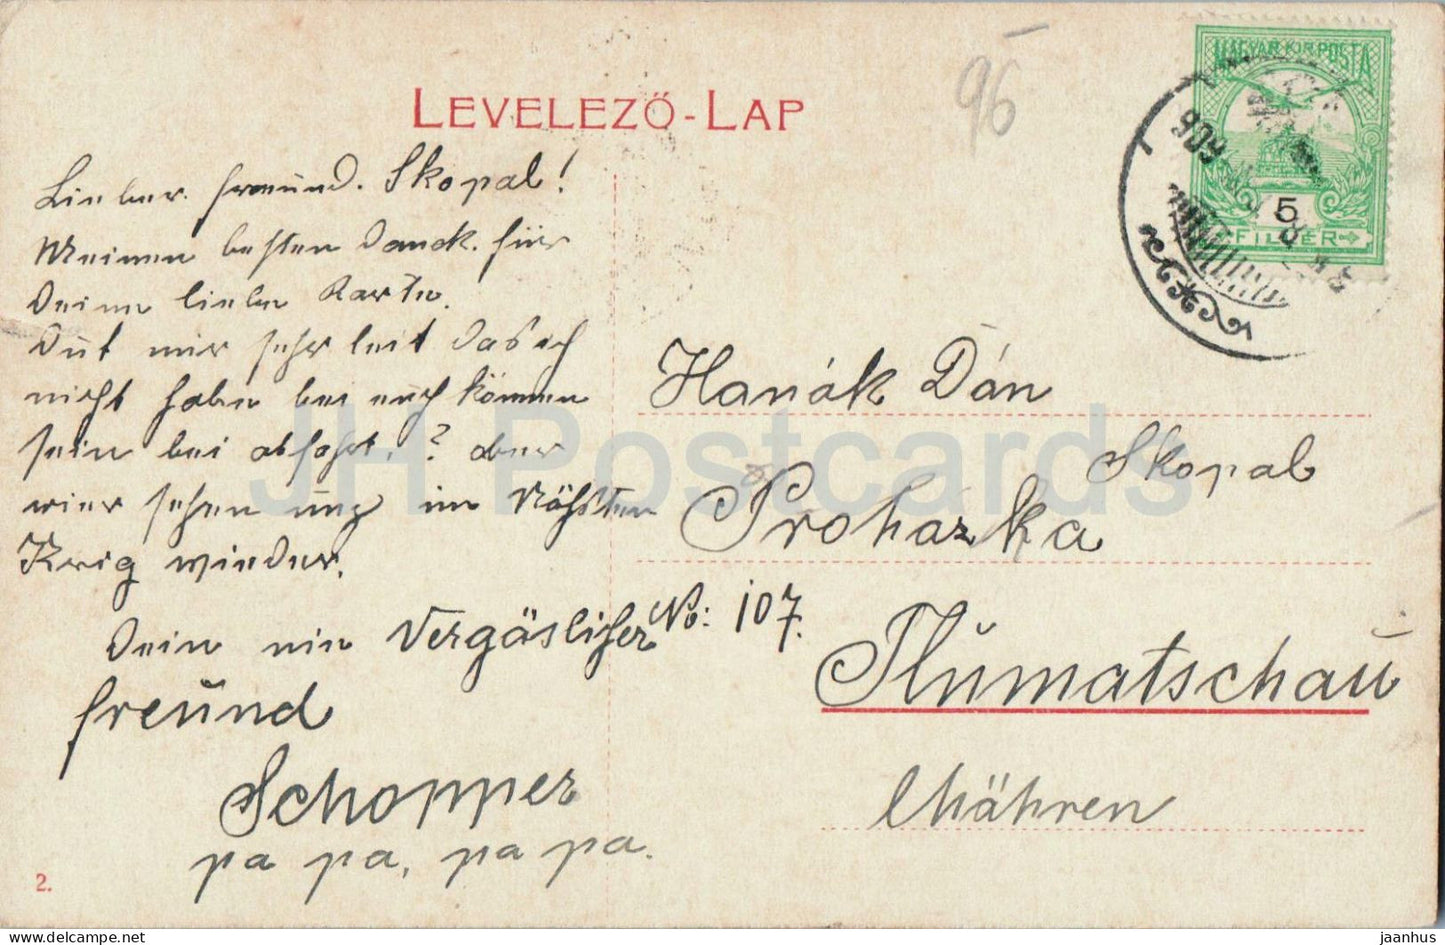 LEVELEZŐ-LAP
96
MAGYAR KIR. POSTA
5
FILLÉR
909
Lieber freund. Skopal!
Meinen besten Danck. für
Deine liebe Karte.
Dut mir sehr leit das ich
nicht habe bei euch können
sein bei abfahrt.? aber
wier sehen unz im Nähsten
Krig winder.
Dein nie Vergäslicher
freund
Schopper
pa pa, pa pa.
2.
Hanák Dán
Skopal
Prohazka
No: 107.
Tlumatschau
Mähren
JH Postcards
delcampe.net
jaanhus